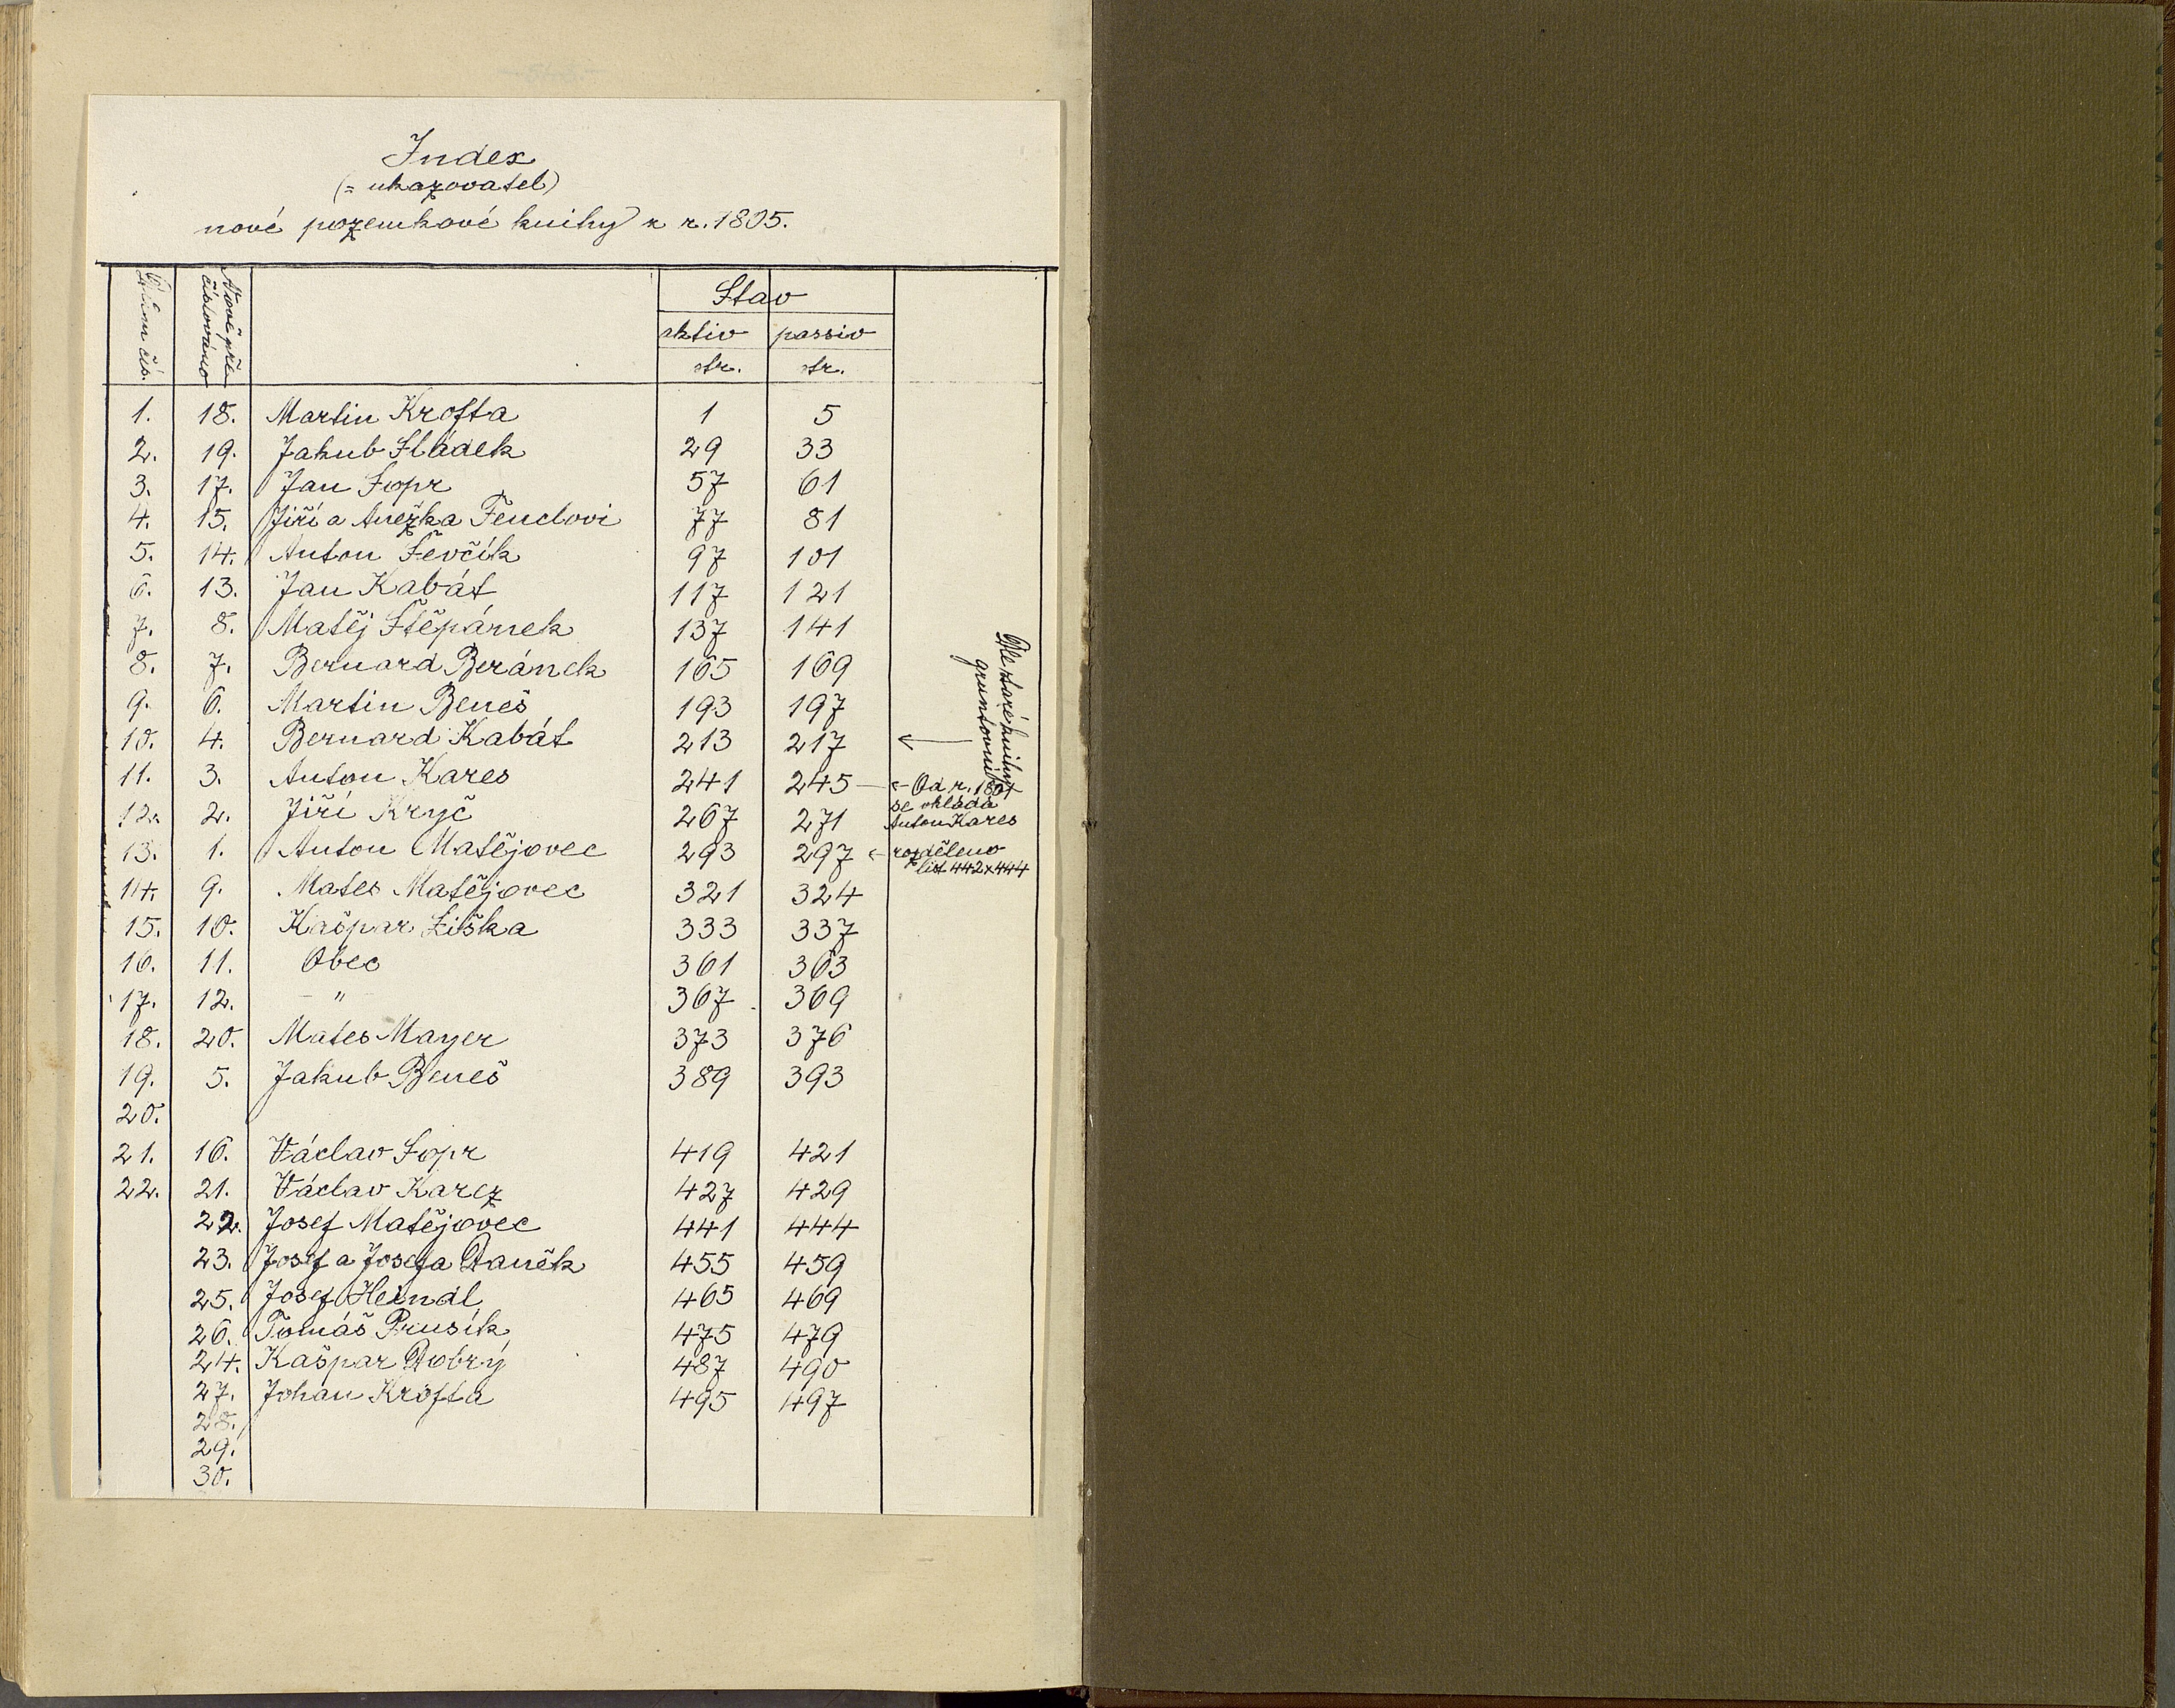 Index
(= ukazovatel)
nové pozemkové knihy z r. 1805.
čís.
Nově pře
číslováno
Stav
aktiv passiv
str. str.
1. 18. Martin Krofta 1 5
2. 19. Jakub Sládek 29 33
3. 17. Jan Sopr 57 61
4. 15. Jiří a Anežka Fenclovi 77 81
5. 14. Anton Ševčík 97 101
6. 13. Jan Kabát 117 121
7. 8. Matěj Štěpánek 137 141
8. 7. Bernard Beránek 165 169
9. 6. Martin Beneš 193 197
10. 4. Bernard Kabát 213 217 ←
Dle staré knihy
gruntovní
11. 3. Anton Kares 241 245 ← Od r. 1801
se vkládá
12. 2. Jiří Kryč 267 271 Anton Kares
13. 1. Anton Matějovec 293 297 ← rozděleno
list 442 x 444
14. 9. Mates Matějovec 321 324
15. 10. Kašpar Liška 333 337
16. 11. Obec 361 363
17. 12. – " 367 369
18. 20. Mates Mayer 373 376
19. 5. Jakub Beneš 389 393
20.
21. 16. Václav Sopr 419 421
22. 21. Václav Karez 427 429
22. Josef Matějovec 441 444
23. Josef a Josefa Daněk 455 459
25. Josef Heindl 465 469
26. Tomáš Prusík 475 479
24. Kašpar Dobrý 487 490
27. Johan Krofta 495 497
28.
29.
30.